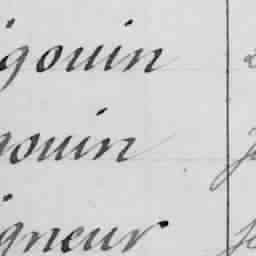 igouin
gouin
igneur